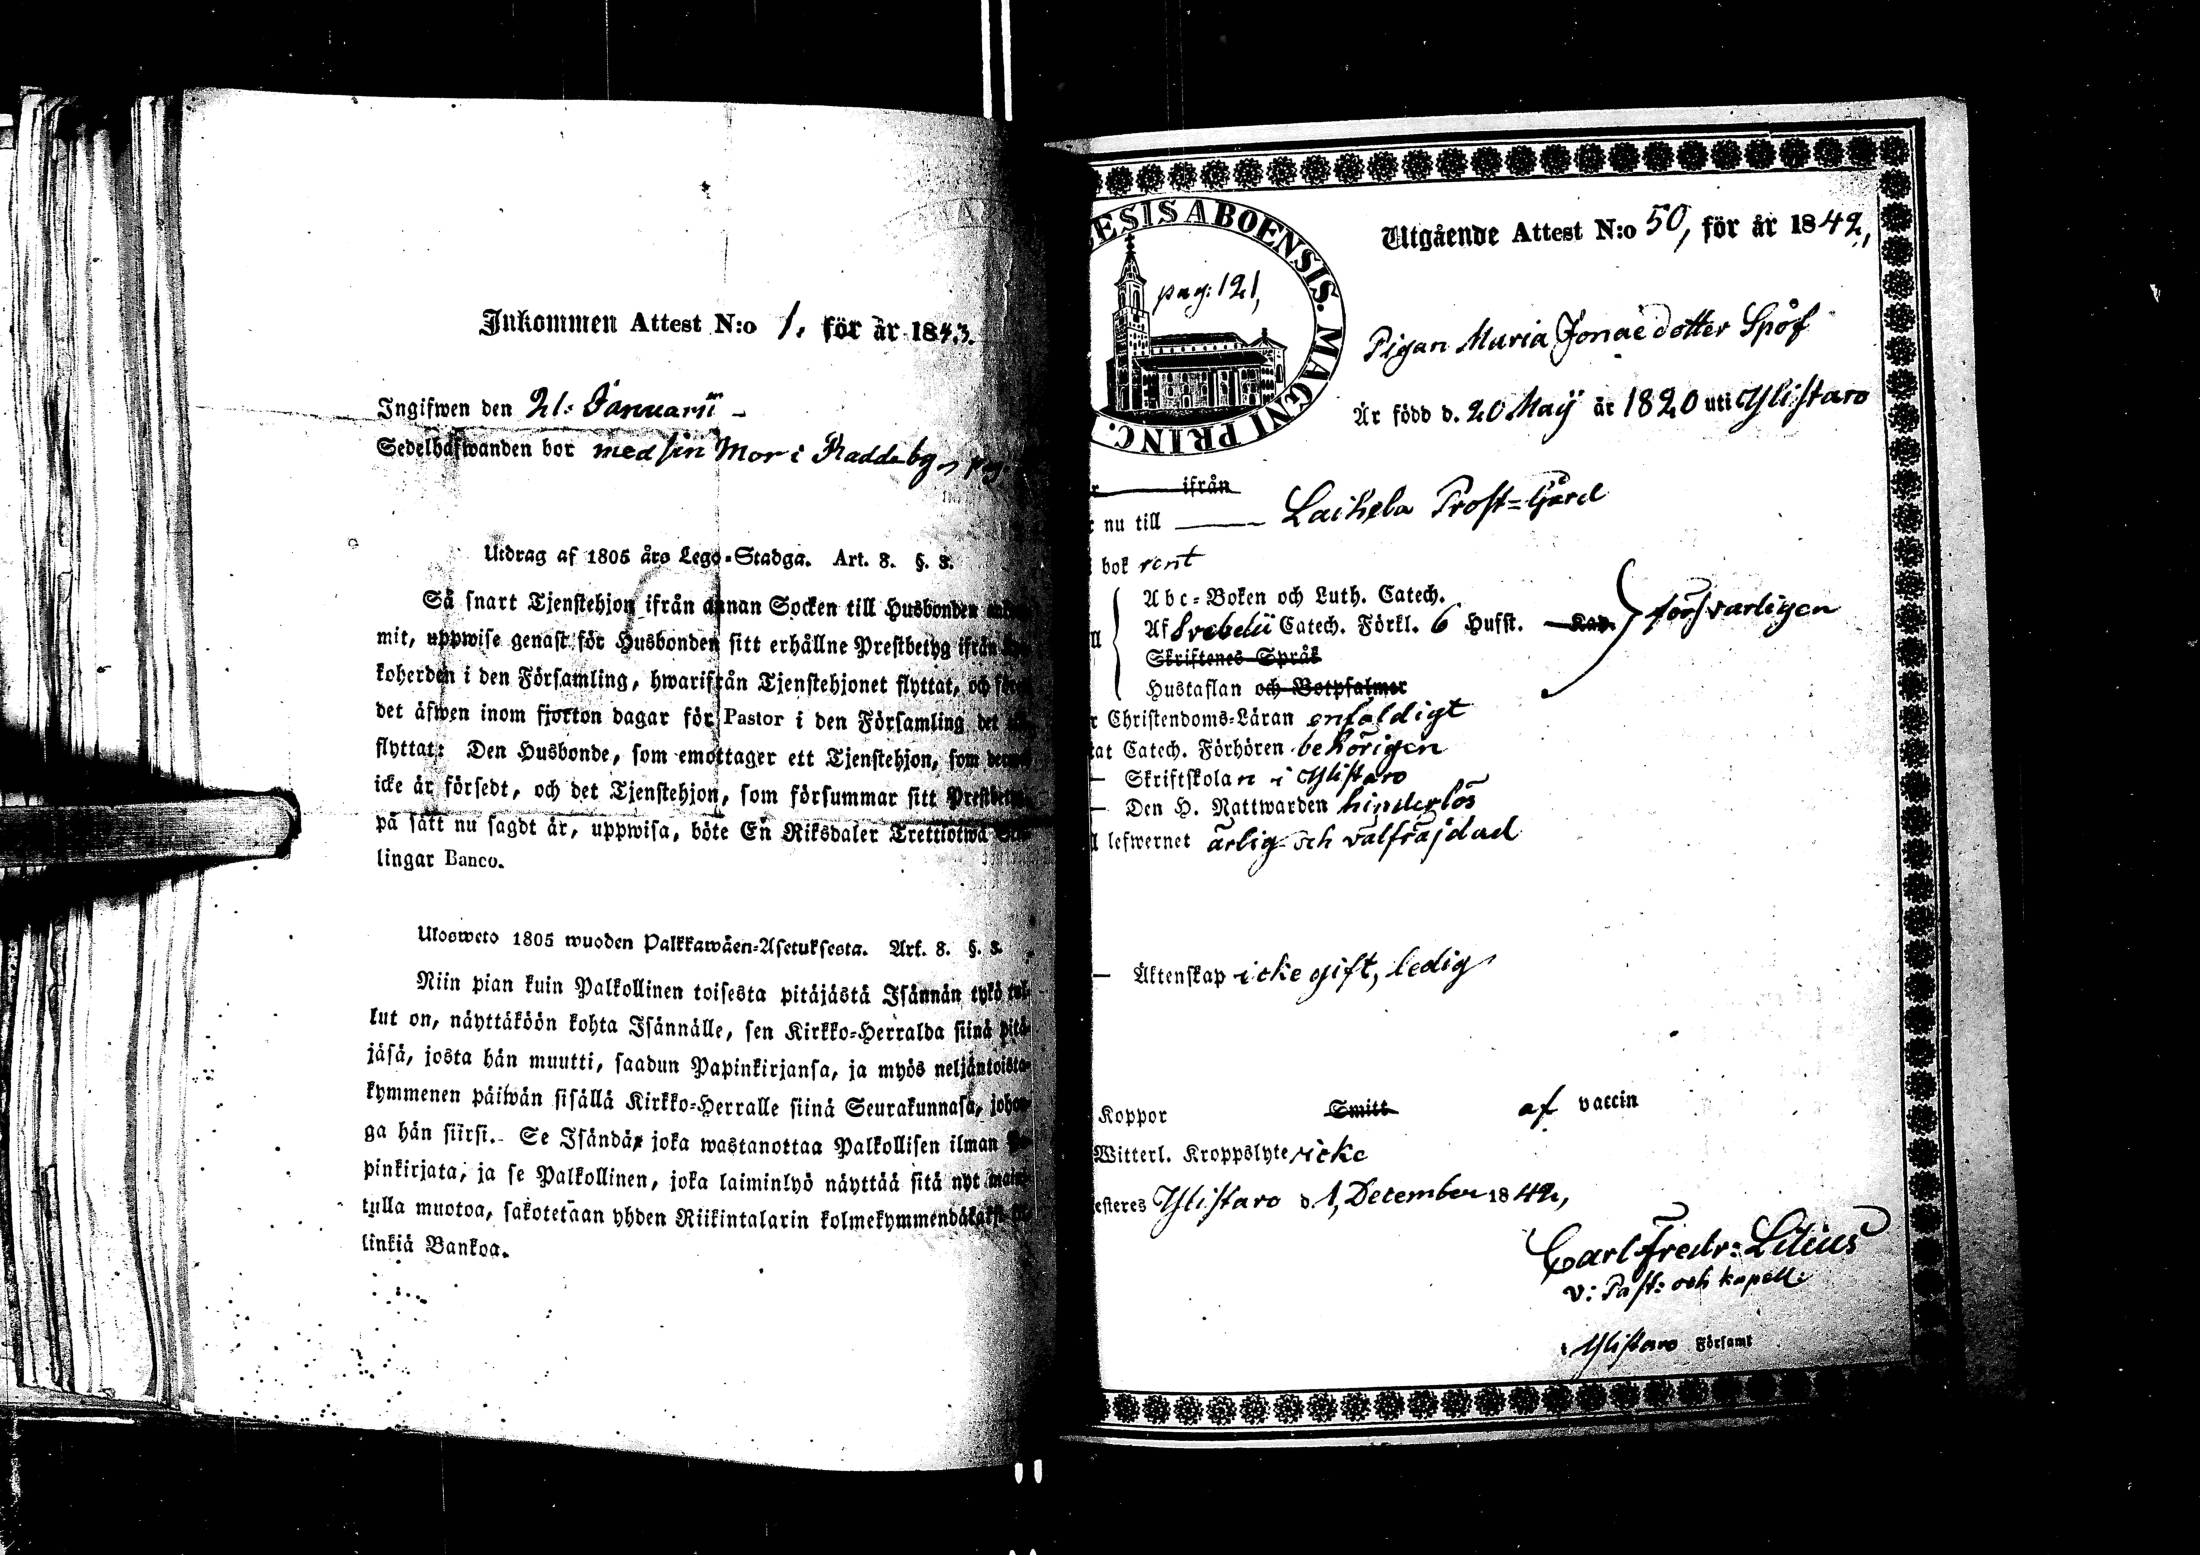 Inkommen Attest N:o 1. för år 1843.
Ingifwen den 21: Januarii –
Sedelhafwanden bor med sin Mor i Raddeby, pag:
Utdrag af 1805 års Lego-Stadga. Art. 8. §. 3.
Så snart Tjenstehjon ifrån annan Socken till Husbonden
mit, uppwise genast för Husbonden sitt erhållne Prestbetyg ifrån
koherden i den Församling, hwarifrån Tjenstehjonet flyttat, och
det äfwen inom fjorton dagar för Pastor i den Församling det
flyttat: Den Husbonde, som emottager ett Tjenstehjon, som dermed
icke är försedt, och det Tjenstehjon, som försummar sitt Prestbetyg,
på sätt nu sagdt är, uppwisa, böte En Riksdaler Trettiotwå
lingar Banco.
Ulosweto 1805 wuoden Palkkawäen-Asetuksesta. Art. 8. §. 3.
Niin pian kuin Palkollinen toisesta pitäjästä Isännän tykö tul-
lut on, näyttäköön kohta Isännälle, sen Kirkko-Herralda siinä pitä-
jäsä, josta hän muutti, saadun Papinkirjansa, ja myös neljäntoista-
kymmenen päiwän sisällä Kirkko-Herralle siinä Seurakunnasa, johon-
ga hän siirsi. Se Isändä, joka wastanottaa Palkollisen ilman
pinkirjata, ja se Palkollinen, joka laiminlyö näyttää sitä nyt
tulla muotoa, sakotetaan yhden Riikintalarin kolmekymmendäkaksi
linkiä Bankoa.
ESIS ABOENSIS. MAGNI PRINC.
pag: 121,
Utgående Attest N:o 50, för år 1842,
Pigan Maria Jonaedotter Spof
Är född d. 20 Maÿ år 1820 uti Ylistaro
ifrån
nu till — Laihela Prost-Gård
bok rent
Abc-Boken och Luth. Catech.
Af Svebelii Catech. Förkl. 6 Hufst. Kap. försvarligen
Skriftenes Språk
Hustaflan och Botpsalmer
Christendoms-Läran enfaldigt
Catech. Förhören behörigen
— Skriftskolan i Ylistaro
— Den H. Nattwarden hinderlös
lefwernet ärlig och välfräjdad
— Äktenskap icke gift, ledig
Koppor Smitt af vaccin
Witterl. Kroppslyte icke
Ylistaro d. 1, December 1842,
Carl Fredr: Lilius
v: Past: och kapell:
i Ylistaro Församl